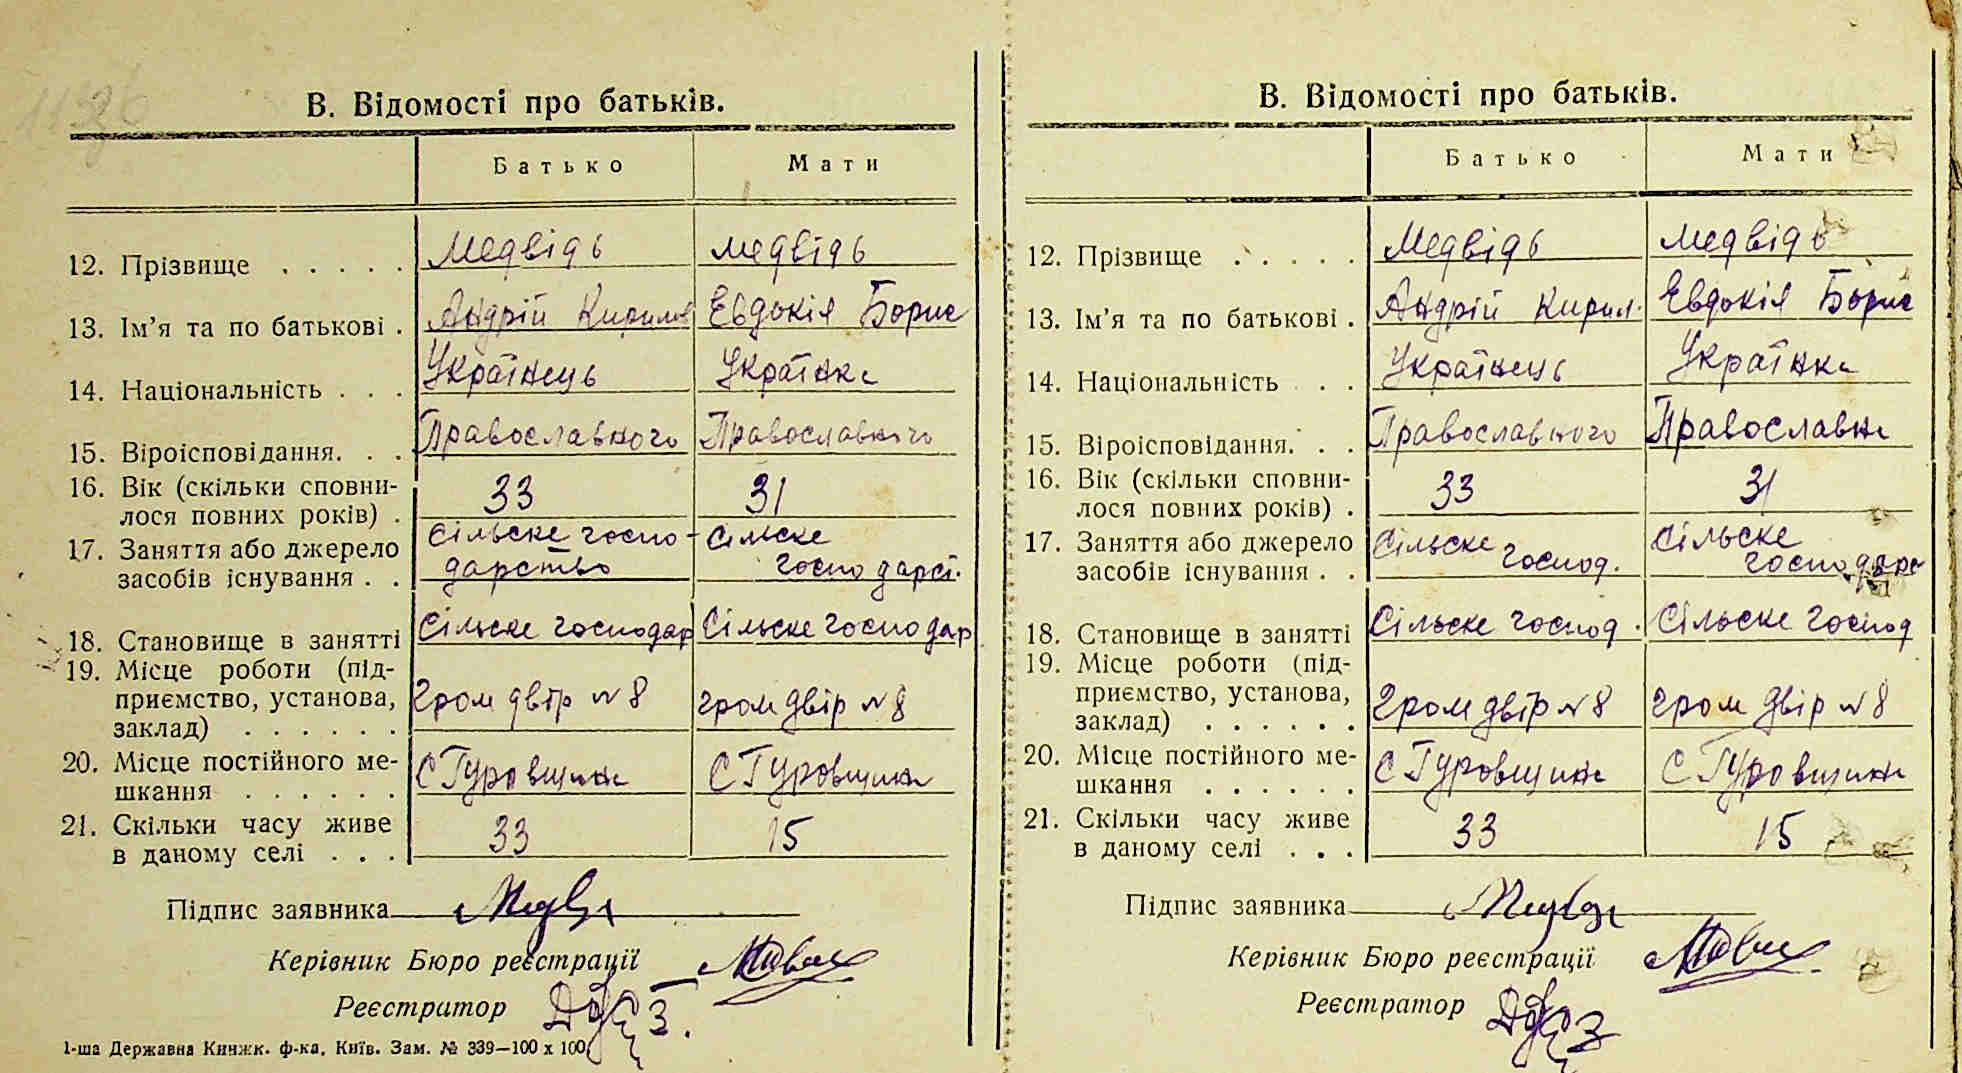 В. Відомості про батьків.
Батько Мати
12. Прізвище . . . . . Медвідь Медвідь
13. Ім'я та по батькові . Андрій Кирилов Евдокія Борис
14. Національність . . . Українець Українка
15. Віроісповідання. . . Православного Православного
16. Вік (скільки сповни-
лося повних років) . 33 31
17. Заняття або джерело Сільске госпо- Сільске
засобів існування . . дарство господарст.
18. Становище в занятті Сільске господар Сільске господар
19. Місце роботи (під-
приємство, установа, Гром двір №8 Гром двір №8
заклад) . . . . . .
20. Місце постійного ме- С Гуровщина С Гуровщина
шкання . . . . . .
21. Скільки часу живе 33 15
в даному селі . . .
Підпис заявника
Керівник Бюро реєстрації
Реєстратор
1-ша Державна Книжк. ф-ка, Київ. Зам. № 339—100 х 100
В. Відомості про батьків.
Батько Мати
12. Прізвище . . . . . Медвідь Медвідь
13. Ім'я та по батькові . Андрій Кирил. Евдокія Борис
14. Національність . . . Українець Українка
15. Віроісповідання. . . Православного Православна
16. Вік (скільки сповни-
лося повних років) . 33 31
17. Заняття або джерело Сільске Сільске
засобів існування . . господ. господарс
18. Становище в занятті Сільске господ. Сільске господ
19. Місце роботи (під-
приємство, установа, Гром двір №8 Гром двір №8
заклад) . . . . . .
20. Місце постійного ме- С Гуровщина С Гуровщина
шкання . . . . . .
21. Скільки часу живе 33 15
в даному селі . . .
Підпис заявника
Керівник Бюро реєстрації
Реєстратор